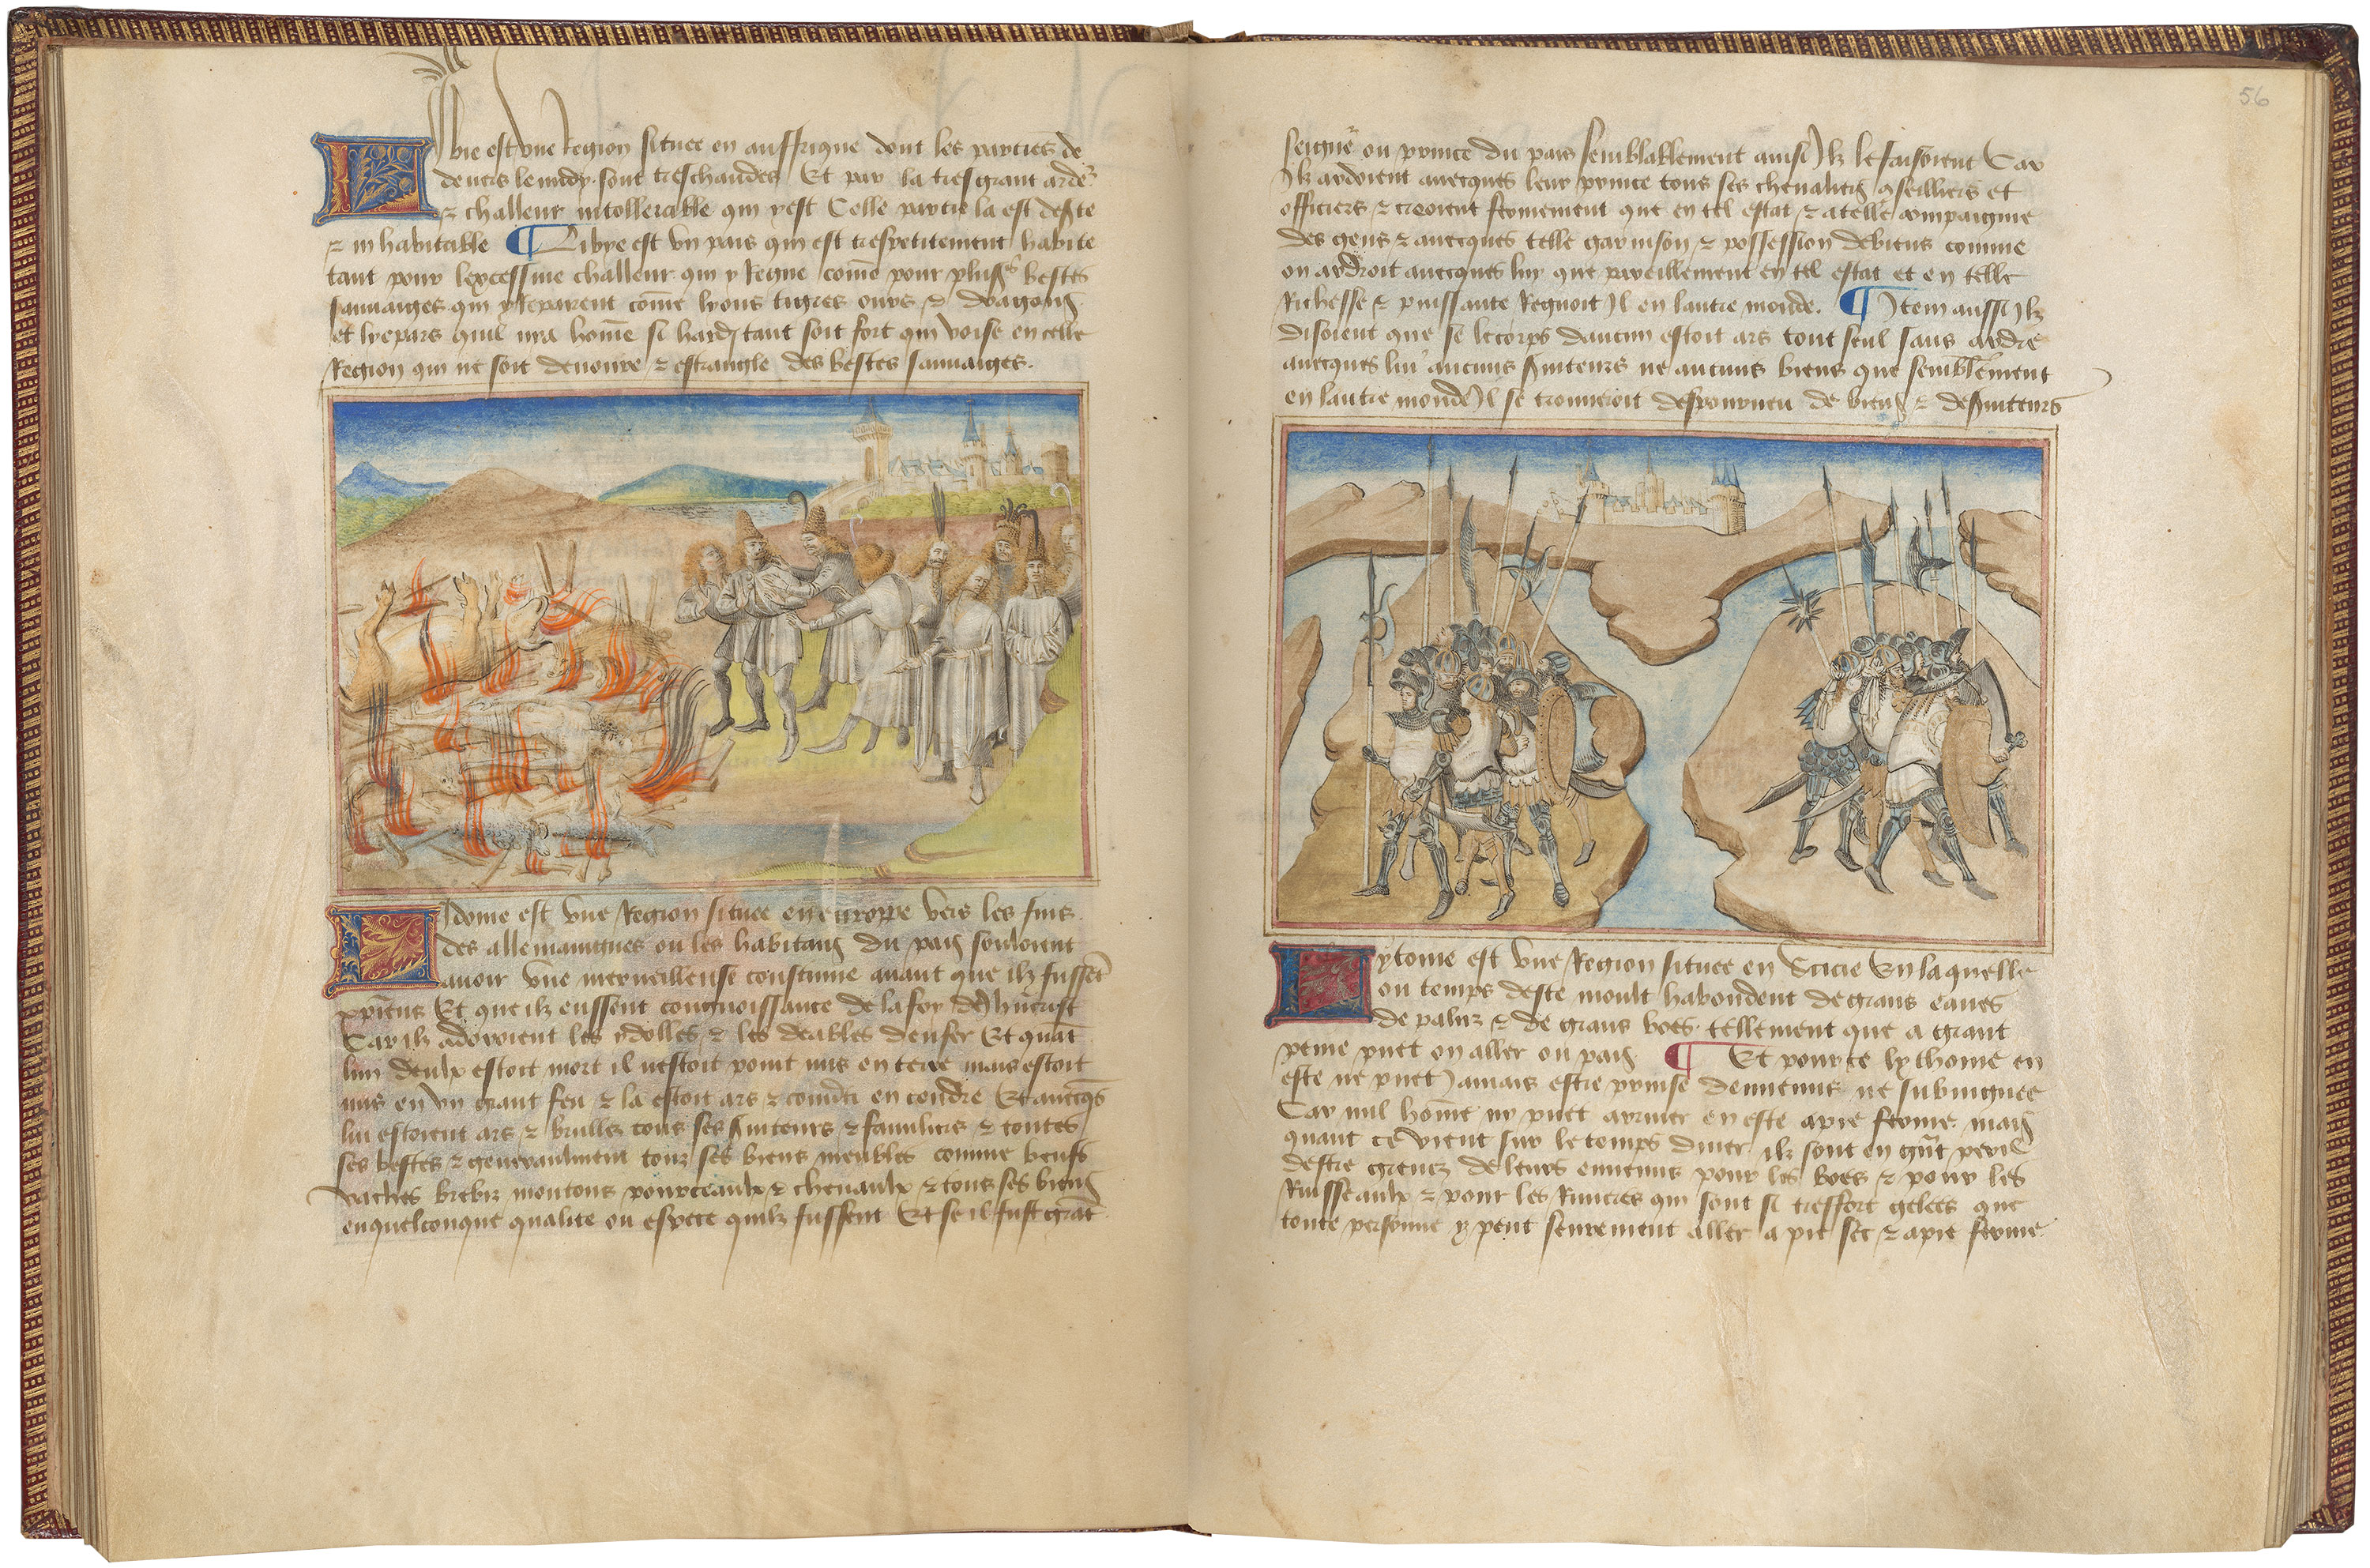 bie est vne Region situee en auffrique dont les parties de
deuers le midy sont treschaudes Et par la tresgrant arde
⁊ challeur intollerable qui y est Celle partie la est deste
⁊ inhabitable ¶ Libye est vn pais qui est trespetitement habite
tant pour lexcessiue challeur qui y Regne come pour plus bestes
sauuaiges qui y Reparent come lyons tigres ours ⁊ dragons
et lyepars quil nya home si hardy tant soit fort qui voise en celle
Region qui ne soit deuoure ⁊ estrangle des bestes sauuaiges.
dome est vne Region situee en europpe vers les fins
des allemaingnes ou les habitans du pais souloient
auoir vne merueilleuse coustume auant que ilz fussent
xpiens Et que ilz eussent congnoissance de la foy de Jhucrist
Car ilz adoroient les ydolles ⁊ les deables denfer Et quat
lun deulx estoit mort il nestoit point mis en terre mais estoit
mis en vn grant feu ⁊ la estoit ars ⁊ en cendre Et auecqs
lui estoient ars ⁊ brullez tous ses suiteurs ⁊ familiers ⁊ toutes
ses bestes ⁊ generaulment touz ses biens meubles comme beufs
vaches brebiz moutons pourceaulx ⁊ cheuaulx ⁊ tous ses biens
en quelconque qualite ou espece quilz fussent Et se il fust grat
56
seigne ou prince du pais semblablement ainsi Ilz le faisoient Car
Ilz ardoient auecques leur prince tous ses cheualiers 9seilliers et
officiers ⁊ creoient fermement que en tel estat ⁊ a telle compaignie
des gens ⁊ auecques telle garnison ⁊ possession de biens comme
on ardroit auecques luy que pareillement en tel estat et en telle
Richesse ⁊ puissante Regnoit Il en lautre monde. ¶ Item aussi Ilz
disoient que se le corps daucun estoit ars tout seul sans ardre
auecques lui aucuns suiteurs ne aucuns biens que semblement
en lautre monde Il se trouueroit despourueu de biens ⁊ de suiteurs
ytome est vne Region situee en Scicie En laquelle
ou temps deste moult habondent de grans eaues
de paluz ⁊ de grans boes tellement que a grant
peine puet on aller ou pais ¶ Et pource lythome en
este ne puet Jamais estre prinse dennemis ne subinguee
Car nul home ny puet arriuer en este a pie ferme mais
quant ce vient sur le temps diuer ilz sont en gnt peril
destre greuez de leurs ennemis pour les boes ⁊ pour les
Ruisseaulx ⁊ pour les Riuieres qui sont si tresfort gelees que
toute personne y peut seurement aller a pie sec ⁊ a pie ferme